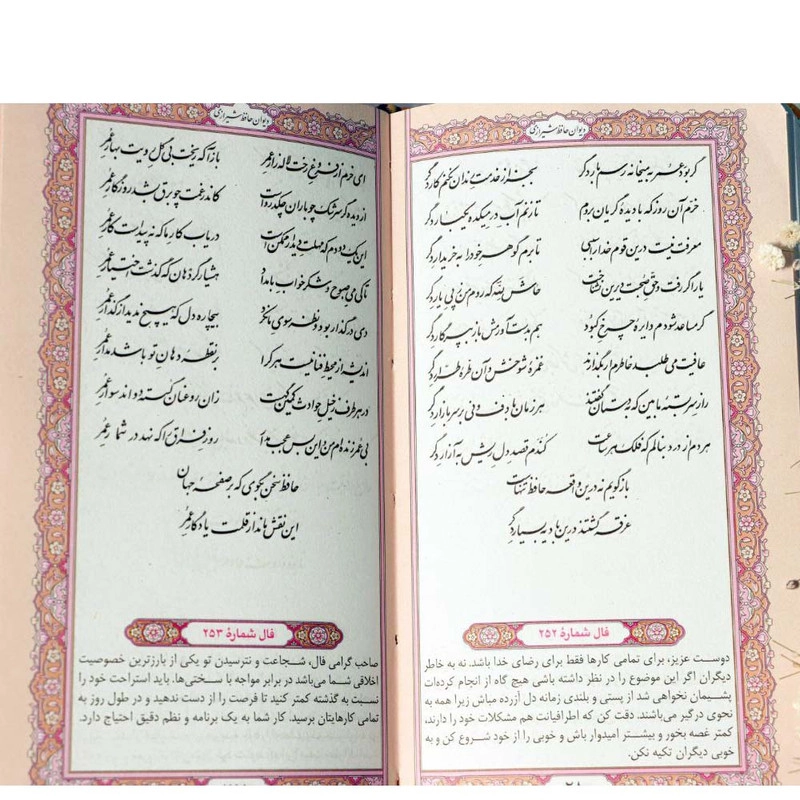 دیوان حافظ شیرازی
گر بود عمر به میخانه رسم بار دگر
بجز از خدمت رندان نکنم کار دگر
خرم آن روز که با دیده گریان بروم
تا زنم آب در میکده یکبار دگر
معرفت نیست درین قوم خدا را سببی
تا برم گوهر خود را به خریدار دگر
یار اگر رفت و حق صحبت دیرین نشناخت
حاش لله که روم من ز پی یار دگر
گر مساعد شودم دایره چرخ کبود
هم بدست آورمش باز به پرگار دگر
عافیت می طلبد خاطرم ار بگذارند
غمزه شوخش و آن طره طرار دگر
راز سربسته ما بین که به دستان گفتند
هر زمان با دف و نی بر سر بازار دگر
هر دم از درد بنالم که فلک هر ساعت
کندم قصد دل ریش به آزار دگر
بازگویم نه درین واقعه حافظ تنهاست
غرقه گشتند درین بادیه بسیار دگر
فال شمارهٔ ۲۵۲
دوست عزیز، برای تمامی کارها فقط برای رضای خدا باشد. نه به خاطر
دیگران اگر این موضوع را در نظر داشته باشی هیچ گاه از انجام کرده‌ات
پشیمان نخواهی شد از پستی و بلندی زمانه دل آزرده مباش زیرا همه به
نحوی درگیر می‌باشند. دقت کن که اطرافیانت هم مشکلات خود را دارند،
کمتر غصه بخور و بیشتر امیدوار باش و خوبی را از خود شروع کن و به
خوبی دیگران تکیه نکن.
دیوان حافظ شیرازی
ای خرم از فروغ رخت لاله زار عمر
بازآ که ریخت بی گل رویت بهار عمر
از دیده گر سرشک چو باران چکد رواست
کاندر غمت چو برق بشد روزگار عمر
این یک دو دم که مهلت دیدار ممکن است
دریاب کار ما که نه پیداست کار عمر
تا کی می صبوح و شکر خواب بامداد
هشیار گرد هان که گذشت اختیار عمر
دی در گذار بود و نظر سوی ما نکرد
بیچاره دل که هیچ ندید از گذار عمر
اندیشه از محیط فنا نیست هر که را
بر نقطه دهان تو باشد مدار عمر
در هر طرف ز خیل حوادث کمین گهیست
زان رو عنان گسسته دواند سوار عمر
بی عمر زنده ام من و این بس عجب مدار
روز فراق را که نهد در شمار عمر
حافظ سخن بگوی که بر صفحه جهان
این نقش ماند از قلمت یادگار عمر
فال شمارهٔ ۲۵۳
صاحب گرامی فال، شجاعت و نترسیدن تو یکی از بارزترین خصوصیت
اخلاقی شما می‌باشد در برابر مواجه با سختی‌ها. باید استراحت خود را
نسبت به گذشته کمتر کنید تا فرصت را از دست ندهید و در طول روز به
تمامی کارهایتان برسید. کار شما به یک برنامه و نظم دقیق احتیاج دارد.